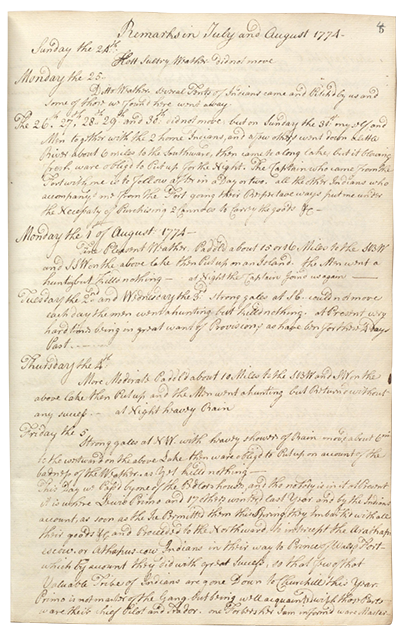 8
Remarks in July and August 1774
Sunday the 24th
Hott Sultry Weather did not move
Monday the 25.
Ditto Weather several Tents of Indians came and Pitch'd by us and
some of those we found here went away
The 26th 27th 28th 29th and 30th did not move but on Sunday the 31 myself and
Men together with the 2 home Indians and a few others went down a little
River about 6 miles to the Southward, then came to a long Lake but it blowing
fresh ware obleg'd to Put up for the Night. The Captain who came from the
Fort with me is to follow after in a Day or two. all the other Indians who
accompanied me from the Fort going their Different ways Put me under
the Necessaty of Purchising 2 Cannoes to Carry the goods &c
Monday the 1 of August 1774
Fine Plesent Weather Padel'd about 15 or 16 Miles to the SBW
and SSW on the above Lake then Put up on an Island. the Men went a
hunting but kill'd nothing at Night the Captain joind us again
Tuesday the 2d and Wednesday the 3d Strong gales at SE could not move
each day the men went a hunting but kill'd nothing. at Present very
hard times being in great want of Provisions, as have been for these 4 days
Past
Thursday the 4th
More Moderate Padel'd about 10 Miles to the SBW and SSW on the
above Lake then Put up and the Men went a hunting but Return'd without
any success at Night heavy Rain
Friday the 5
Strong gales at NW with heavy showers of Rain mov'd about 6 Miles
to the westward on the above Lake then ware obleg'd to Put up on account of the
badness of the Weather, as yet kill'd nothing
This Day we Pass'd by one of the Pedlers houses, and the notisty is in it at Present
it is where Primo and 17 others winterd last Year. and by the Indians
account, as soon as the Ice Permitted them this Spring they Imbark'd with all
their goods &c, and Proceeded to the Northward to intersept the
or Athapus-cow Indians in their way to Prince of Wales's Fort
which by account they did with great Success, so that few of that
Valuable Tribe of Indians are gone Down to Churchill this Year.
Primo is not master of the Gang, but being well acquainted with those Parts
ware their Chief Pilot and Trader. one Forbesher I am inform'd ware Master